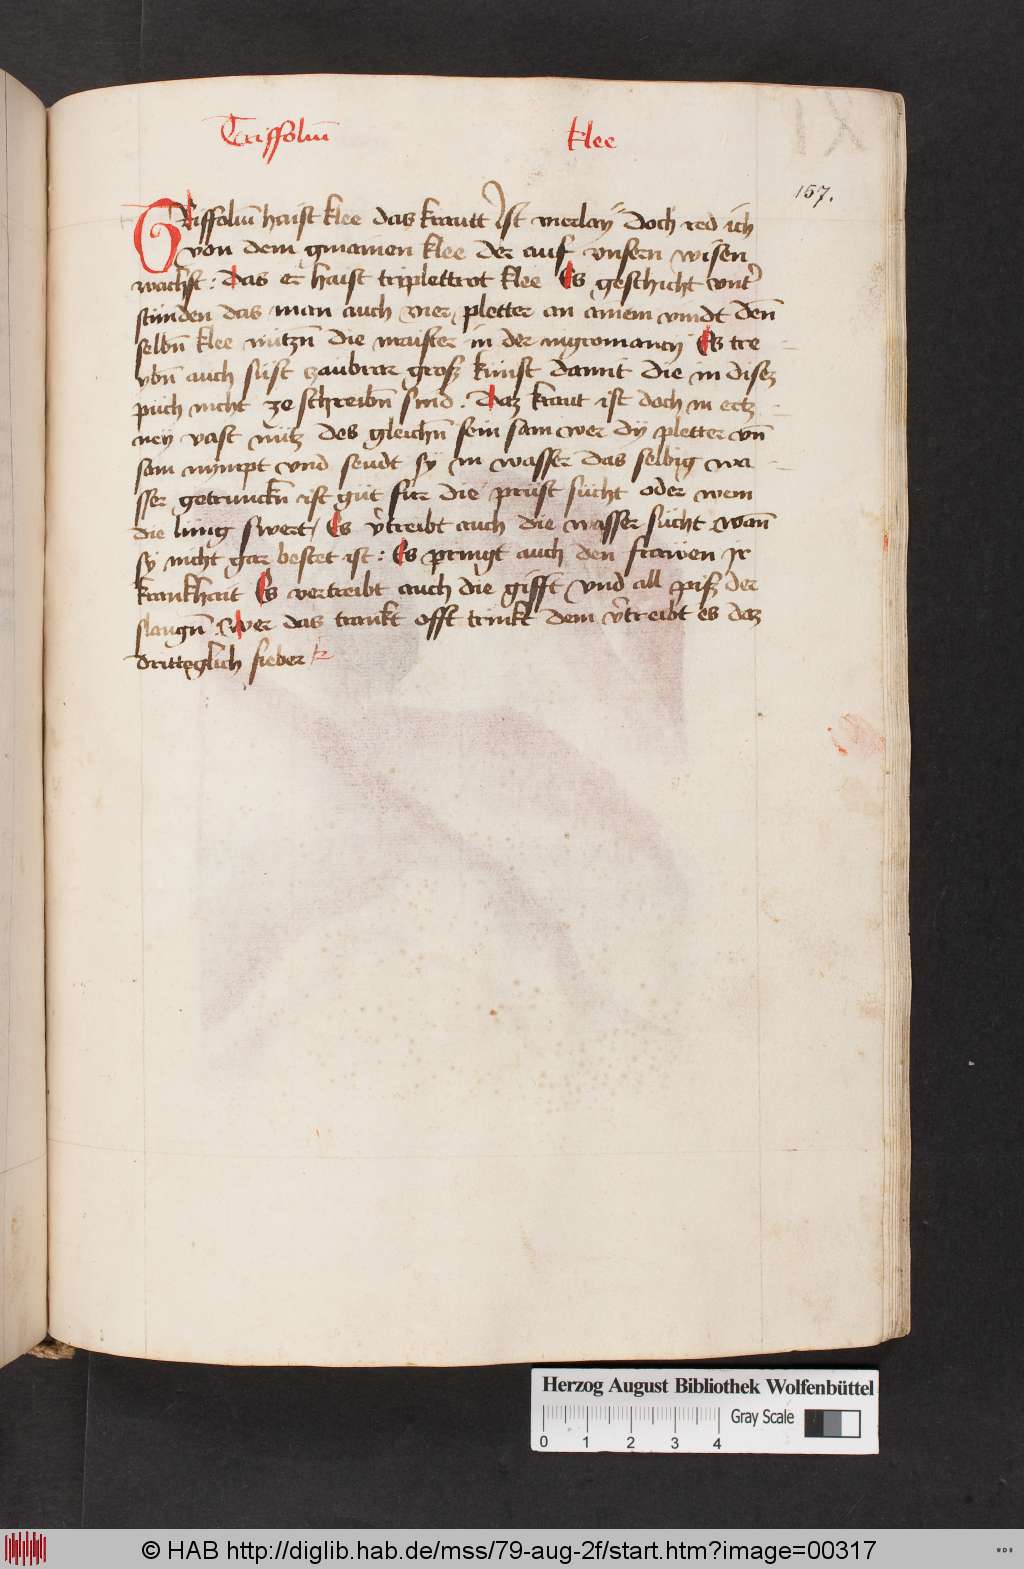 Triffoliū klee
157.
Triffoliū haist klee das krautt Ist vierlay Doch red ich
von dem gmainen klee der auf vnsern wisen
wachst : das er haist triplettrot klee Es geschicht vntˀ
stunden das man auch vier pletter an ainem vindt den̄
selbn̄ klee nützn̄ die maister in der nigromancy Es tre
ybn̄ auch süst zaubrar groß künst damit die in disez
püch nicht ze schreibn̄ sind . daz kraut ist doch in ertz
ney vast nütz des gleichn̄ sein sam wer dy pletter vn̄
sam nympt vnd seudt sy in wasser das selbig wa
sser getrunckn̄ ist güt für die prüst sücht oder wem
die lung swert / Es v̄treibt auch die wasser sücht wan̄
sy nicht gar bestet ist : Es pringt auch den frawen ir
krankhait Es vertreibt auch die gifft vnd all piß der
slangn̄ . wer das trankt offt trinkt dem v̄treibt es daz
dritteglich fieber
Herzog August Bibliothek Wolfenbüttel
Gray Scale
0 1 2 3 4
© HAB http://diglib.hab.de/mss/79-aug-2f/start.htm?image=00317